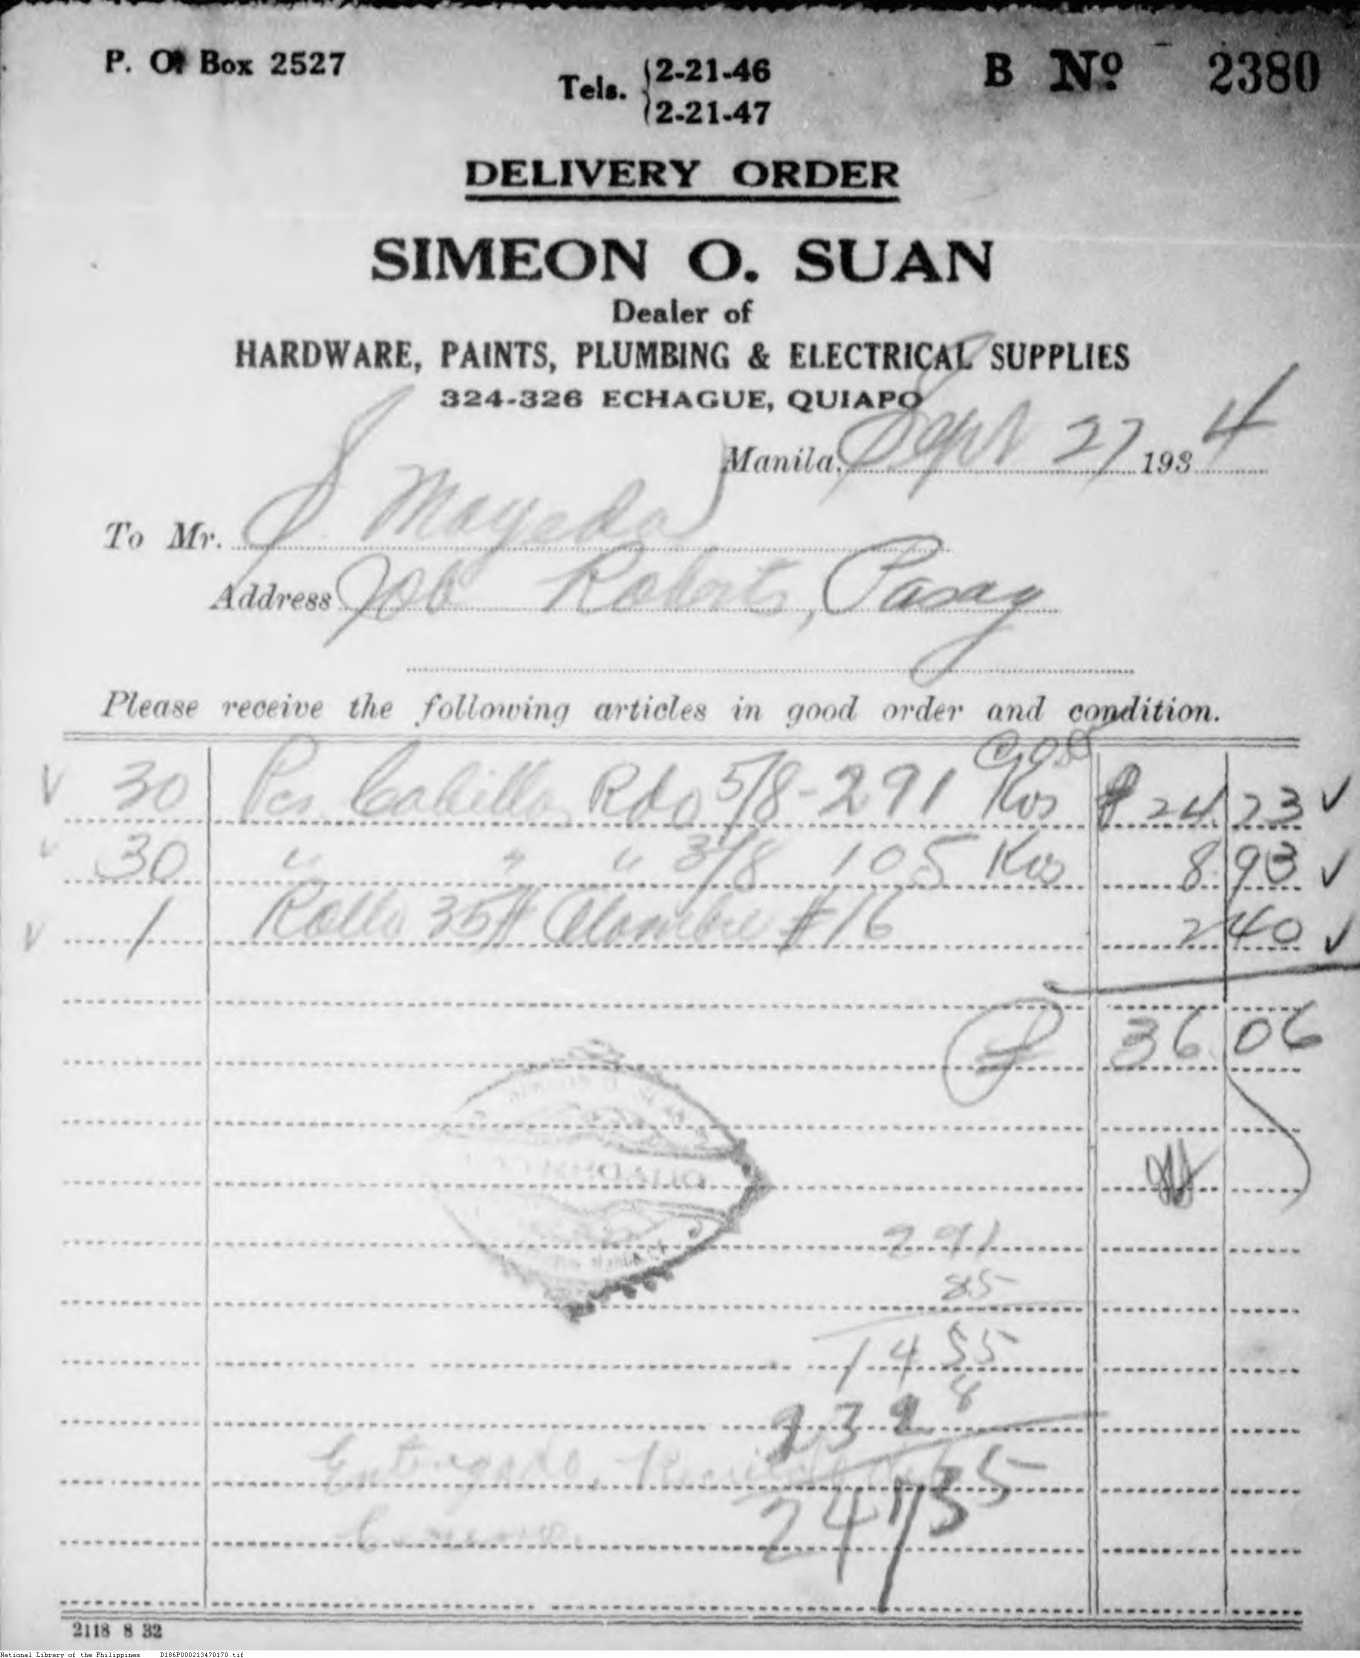 P. O. Box 2527
Tels. 2-21-46
2-21-47
B Nº 2380
DELIVERY ORDER
SIMEON O. SUAN
Dealer of
HARDWARE, PAINTS, PLUMBING & ELECTRICAL SUPPLIES
324-326 ECHAGUE, QUIAPO
Manila, Sept 27 1934
To Mr. S. Mayeda
Address Job Roberts, Pasay
Please receive the following articles in good order and condition.
@ 085
30 Pcs. Cabilla Rdo 5/8 - 291 Kos ₱ 24.23
30 " " " 3/8 105 Kos 8.93
1 Rollo 35# Alambre #16 2 40
₱ 36.06
291
85
1455
2328
24735
Entregado, Recibido
2118 8 32
National Library of the Philippines D186P000213470170.tif